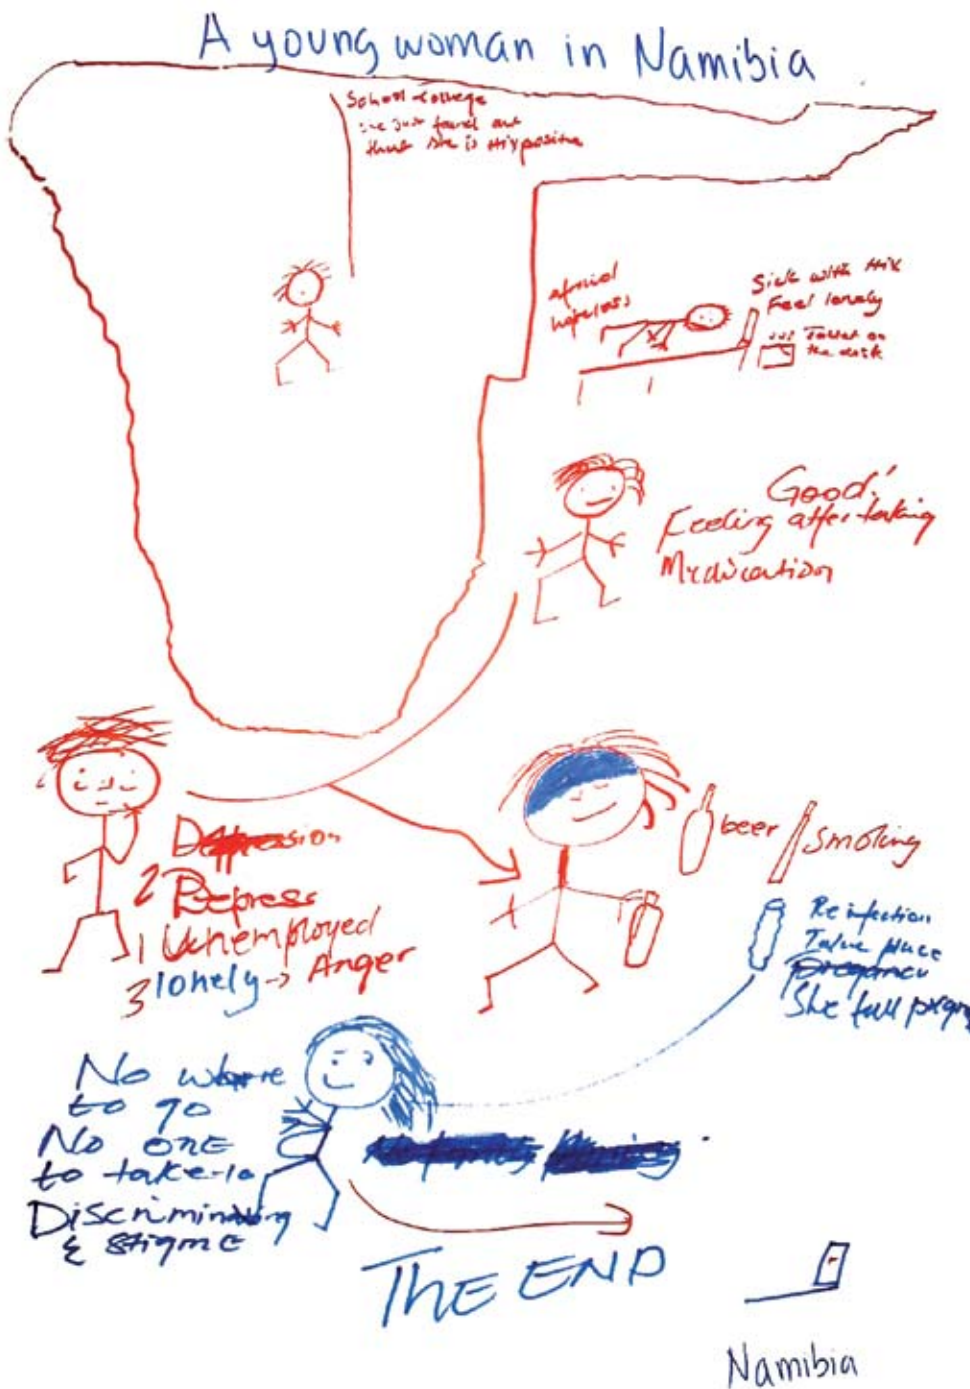 A young woman in Namibia
School-College
she just found out
that she is HIV positive
afraid
hopeless
Sick with HIV
Feel lonely
Tablet on
the desk
Good!
Feeling after taking
Medication
beer
Smoking
2 Depress
1 Unemployed
3 lonely → Anger
Reinfection
Take place
She fall pregn
No where
to go
No one
to take-to
Discriminating
& stigme
THE END
Namibia